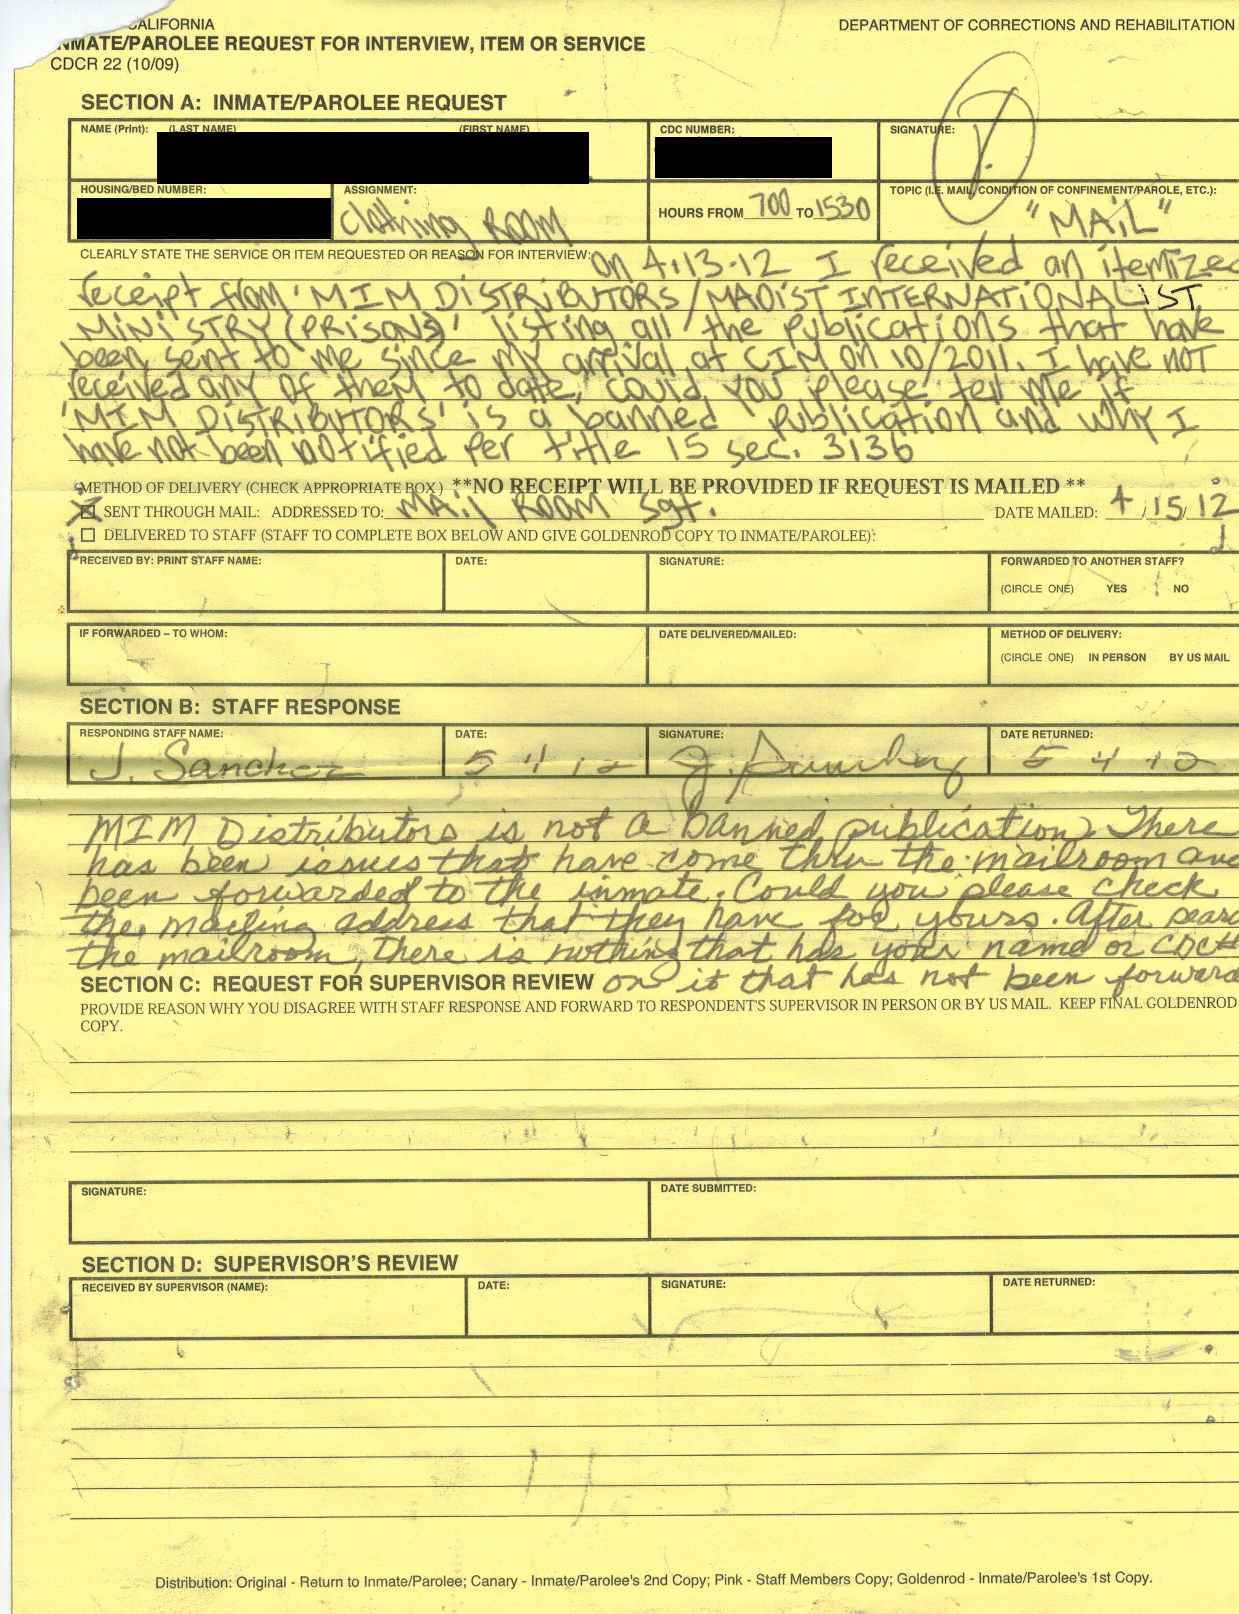 CALIFORNIA
DEPARTMENT OF CORRECTIONS AND REHABILITATION
INMATE/PAROLEE REQUEST FOR INTERVIEW, ITEM OR SERVICE
CDCR 22 (10/09)
SECTION A: INMATE/PAROLEE REQUEST
NAME (Print): (LAST NAME) (FIRST NAME) CDC NUMBER: SIGNATURE:
HOUSING/BED NUMBER: ASSIGNMENT: TOPIC (I.E. MAIL, CONDITION OF CONFINEMENT/PAROLE, ETC.):
Clothing Room HOURS FROM 700 TO 1530 "MAIL"
CLEARLY STATE THE SERVICE OR ITEM REQUESTED OR REASON FOR INTERVIEW: on 4.13.12 I received an itemized
receipt from 'MIM DISTRIBUTORS/MAOIST INTERNATIONALIST
MINISTRY (PRISONS)' listing all the publications that have
been sent to me since my arrival at CIM on 10/2011. I have NOT
received any of them to date, could you please tell me if
'MIM DISTRIBUTORS' is a banned publication and why I
have not been notified per title 15 sec. 3136
METHOD OF DELIVERY (CHECK APPROPRIATE BOX) **NO RECEIPT WILL BE PROVIDED IF REQUEST IS MAILED **
SENT THROUGH MAIL: ADDRESSED TO: MAil ROOM Sgt. DATE MAILED: 4 /15/ 12
DELIVERED TO STAFF (STAFF TO COMPLETE BOX BELOW AND GIVE GOLDENROD COPY TO INMATE/PAROLEE):
RECEIVED BY: PRINT STAFF NAME: DATE: SIGNATURE: FORWARDED TO ANOTHER STAFF?
(CIRCLE ONE) YES NO
IF FORWARDED – TO WHOM: DATE DELIVERED/MAILED: METHOD OF DELIVERY:
(CIRCLE ONE) IN PERSON BY US MAIL
SECTION B: STAFF RESPONSE
RESPONDING STAFF NAME: DATE: SIGNATURE: DATE RETURNED:
J. Sanchez 5 4 12 J. Sanchez 5 4 12
MIM Distributors is not a banned publication. There
has been issues that have come thru the mailroom and
been forwarded to the inmate. Could you please check
the mailing address that they have for yours. After sear
the mailroom, there is nothing that has your name or CDC#
SECTION C: REQUEST FOR SUPERVISOR REVIEW on it that has not been forward
PROVIDE REASON WHY YOU DISAGREE WITH STAFF RESPONSE AND FORWARD TO RESPONDENT'S SUPERVISOR IN PERSON OR BY US MAIL. KEEP FINAL GOLDENROD
COPY.
SIGNATURE: DATE SUBMITTED:
SECTION D: SUPERVISOR'S REVIEW
RECEIVED BY SUPERVISOR (NAME): DATE: SIGNATURE: DATE RETURNED:
Distribution: Original - Return to Inmate/Parolee; Canary - Inmate/Parolee's 2nd Copy; Pink - Staff Members Copy; Goldenrod - Inmate/Parolee's 1st Copy.